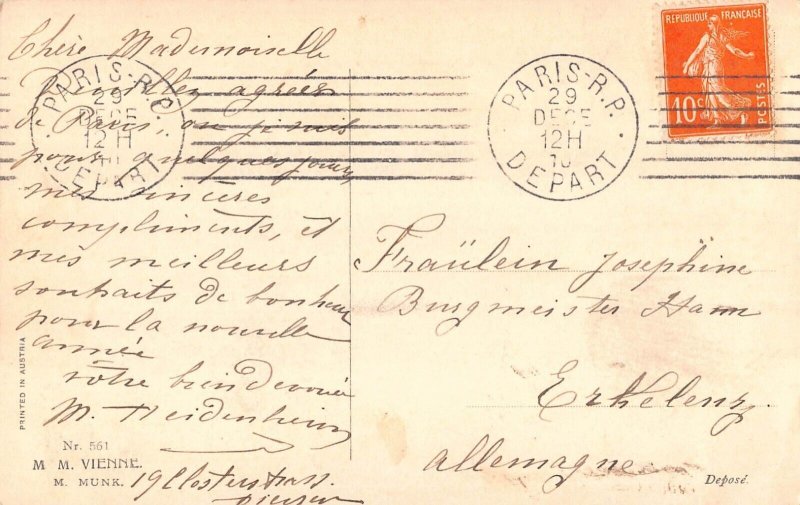 Chère Mademoiselle
Veuillez agréer
de Paris, où je suis
pour quelques jours,
mes sincères
compliments, et
mes meilleurs
souhaits de bonheur
pour la nouvelle
année
votre bien devoué
M. Heidenheim
19 Closterstrass.
PARIS-R.P.
29
DECE
12H
10
DEPART
PARIS-R.P.
29
DECE
12H
10
DEPART
REPUBLIQUE FRANÇAISE
10c
POSTES
Fräulein Josephine
Burgmeister Hann
Erkelenz
Allemagne
PRINTED IN AUSTRIA
Nr. 561
M M. VIENNE.
M. MUNK.
Deposé.